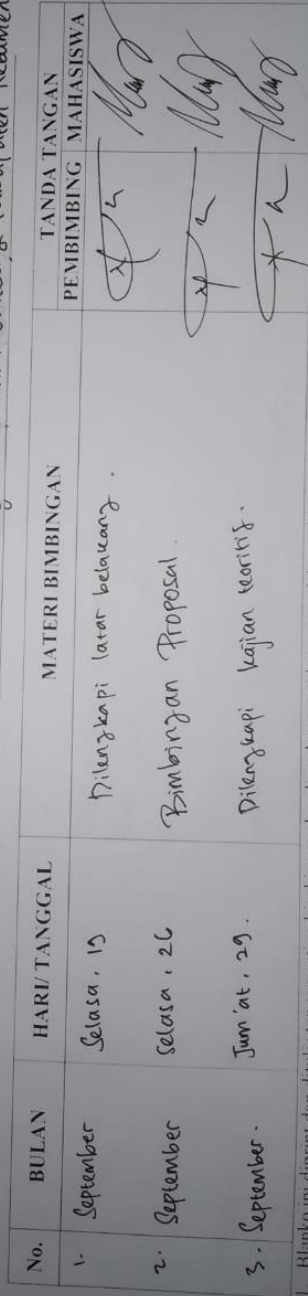 Kebumen
No. BULAN HARI/ TANGGAL MATERI BIMBINGAN TANDA TANGAN
PEMBIMBING MAHASISWA
1. September Selasa, 19 Dilengkapi latar belakang.
2. September Selasa, 26 Bimbingan Proposal.
3. September. Jum'at, 29. Dilengkapi kajian teoritis.
Blanko ini diprint dan ditulis